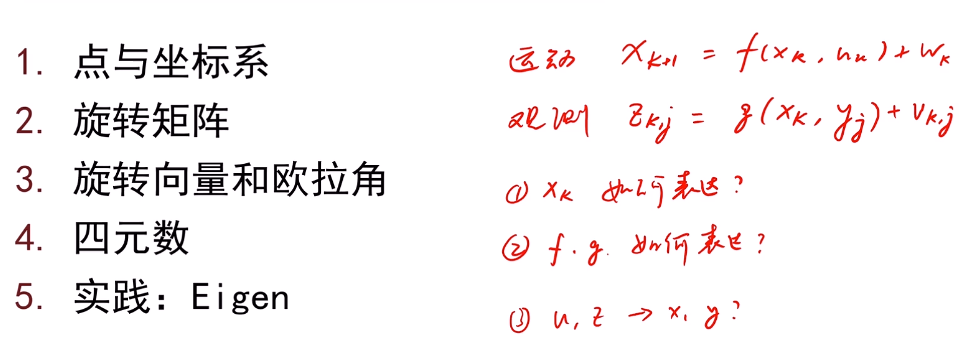 1. 点与坐标系
2. 旋转矩阵
3. 旋转向量和欧拉角
4. 四元数
5. 实践：Eigen
运动 x_{k+1} = f(x_k, u_k) + w_k
观测 z_{k,j} = g(x_k, y_j) + v_{k,j}
① x_k 如何表达？
② f. g. 如何表达？
③ u, z → x, y？